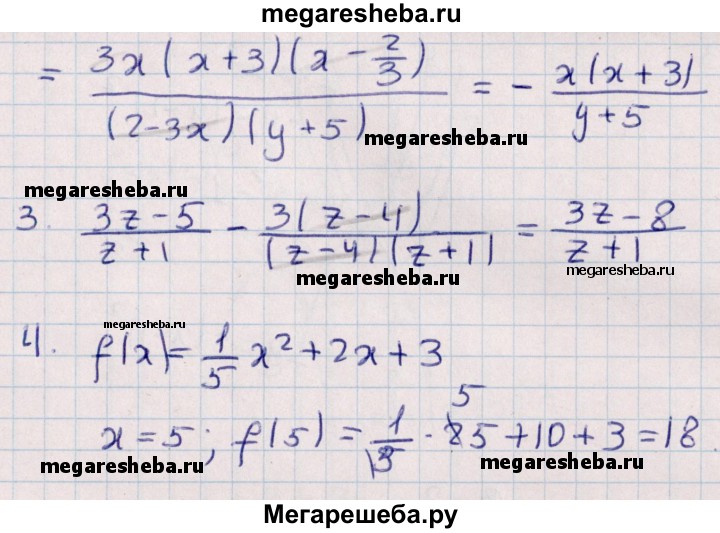 megaresheba.ru
= 3x(x+3)(x-2/3) / (2-3x)(y+5) = - x(x+3) / y+5
megaresheba.ru
megaresheba.ru
3. 3z-5 / z+1 - 3(z-4) / (z-4)(z+1) = 3z-8 / z+1
megaresheba.ru
megaresheba.ru
megaresheba.ru
4. f(x)= 1/5 x² + 2x + 3
5
x = 5; f(5) = 1/5 · 25 + 10 + 3 = 18.
megaresheba.ru
megaresheba.ru
Мегарешеба.ру